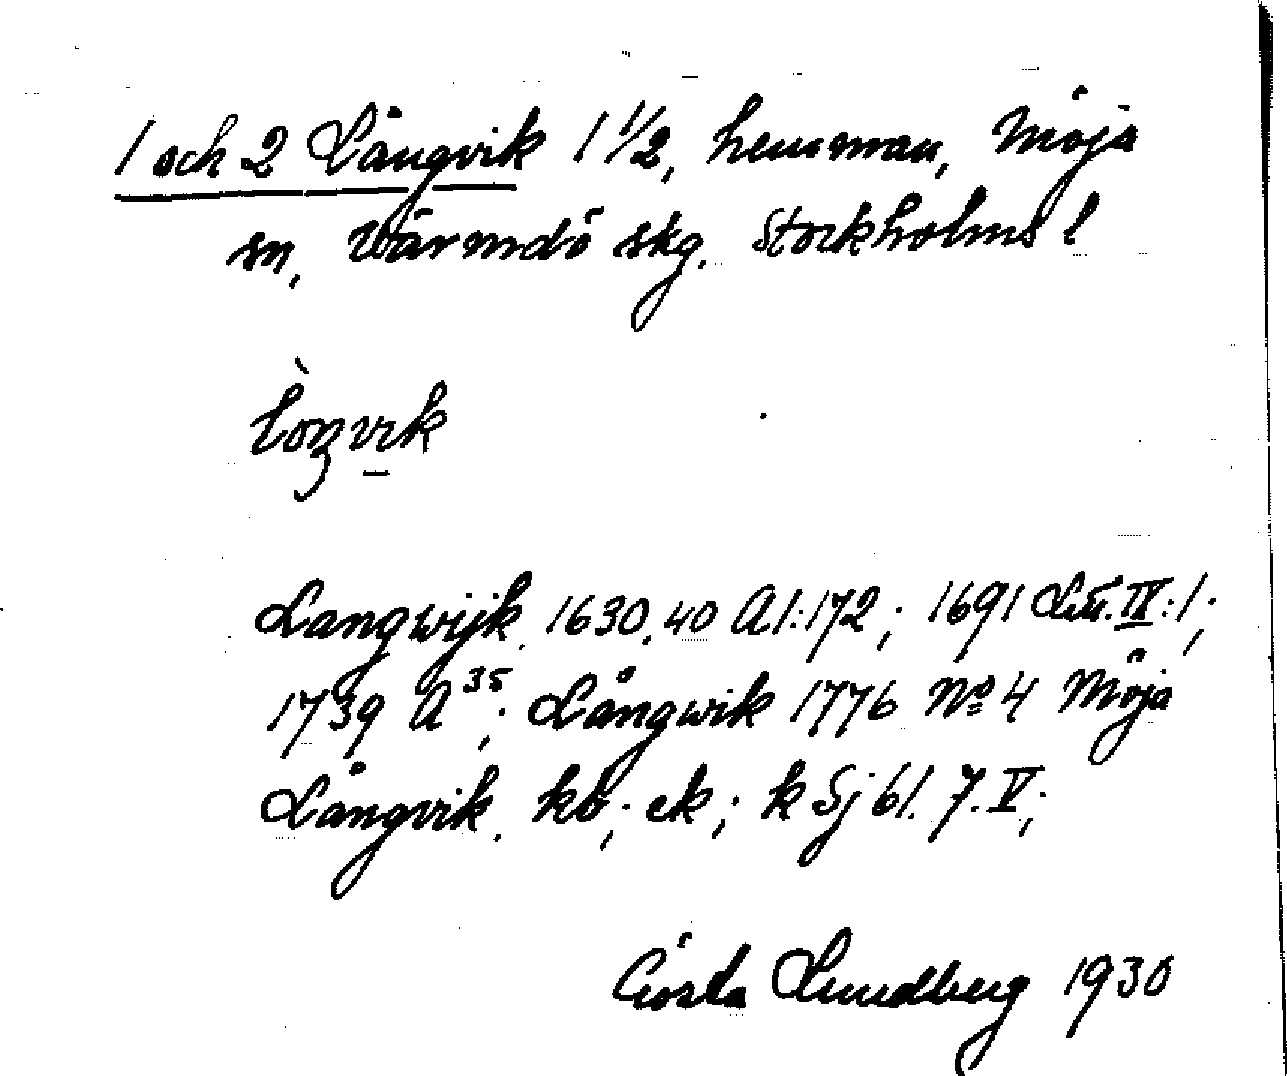 1 och 2 Långvik 1 1/2, hemman, Möja
sn, Värmdö skg. Stockholms l
Lòŋvik
Langwijk 1630, 40 A1:172; 1691 Lm. IV:1;
1739 A³⁵; Långwik 1776 No 4 Möja
Långvik. kb; ek; k Sj 61. 7. V;
Gösta Lundberg 1930